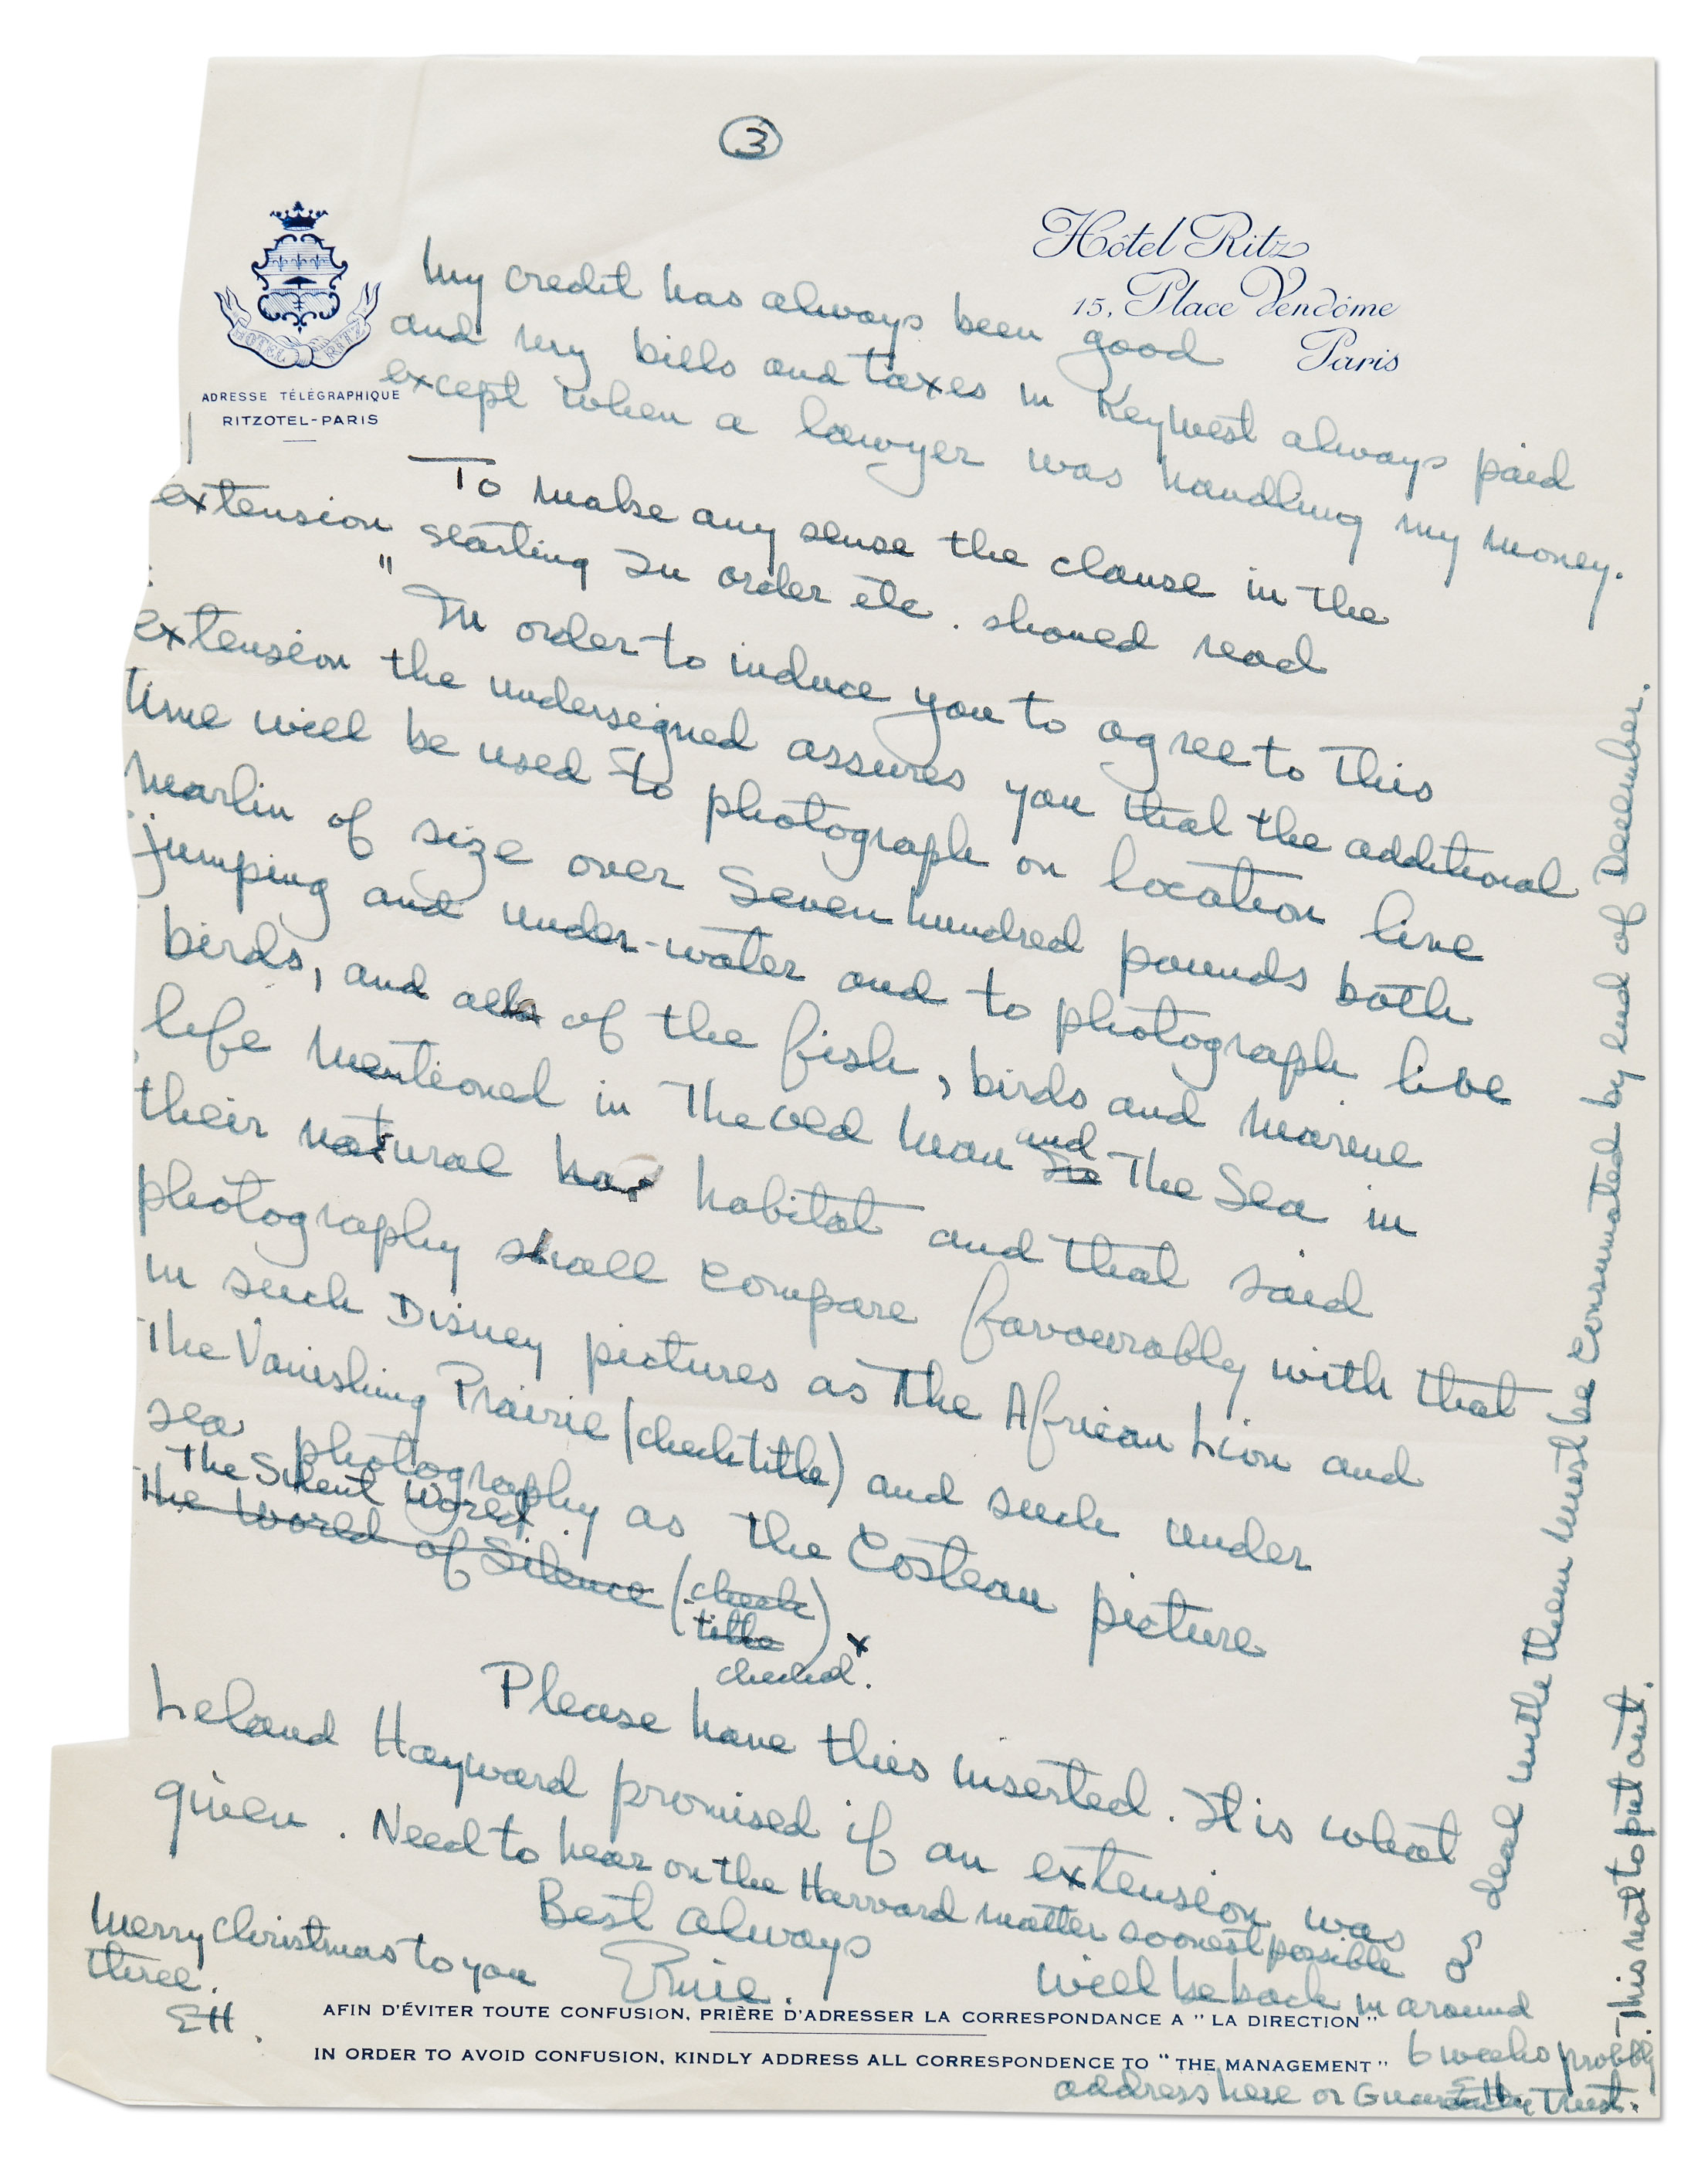 3
Hôtel Ritz
15, Place Vendôme
Paris
HOTEL RITZ
ADRESSE TÉLÉGRAPHIQUE
RITZOTEL-PARIS
My credit has always been good
and my bills and taxes in Key West always paid
except when a lawyer was handling my money.
To make any sense the clause in the
extension starting In order etc. should read
"In order to induce you to agree to this
extension the undersigned assures you that the additional
time will be used to photograph on location live
marlin of size over seven hundred pounds both
jumping and under-water and to photograph live
birds, and all of the fish, birds and marine
life mentioned in The Old Man and The Sea in
their natural ha habitat and that said
photography shall compare favourably with that
in such Disney pictures as The African Lion and
The Vanishing Prairie (check title) and such under
sea photography as the Costeau picture
The Silent World.
The World of Silence (check
title)
checked. x
Please have this inserted. It is what
Leland Hayward promised if an extension was
given. Need to hear on the Harvard matter soonest possible
Best always
Ernie.
Merry Christmas to you
three.
EH.
will be back in around
6 weeks probbly
address here or Guaranty Trust.
EH
as deal with them must be consummated by end of December.
This not to put out.
AFIN D'ÉVITER TOUTE CONFUSION, PRIÈRE D'ADRESSER LA CORRESPONDANCE A "LA DIRECTION"
IN ORDER TO AVOID CONFUSION, KINDLY ADDRESS ALL CORRESPONDENCE TO "THE MANAGEMENT"